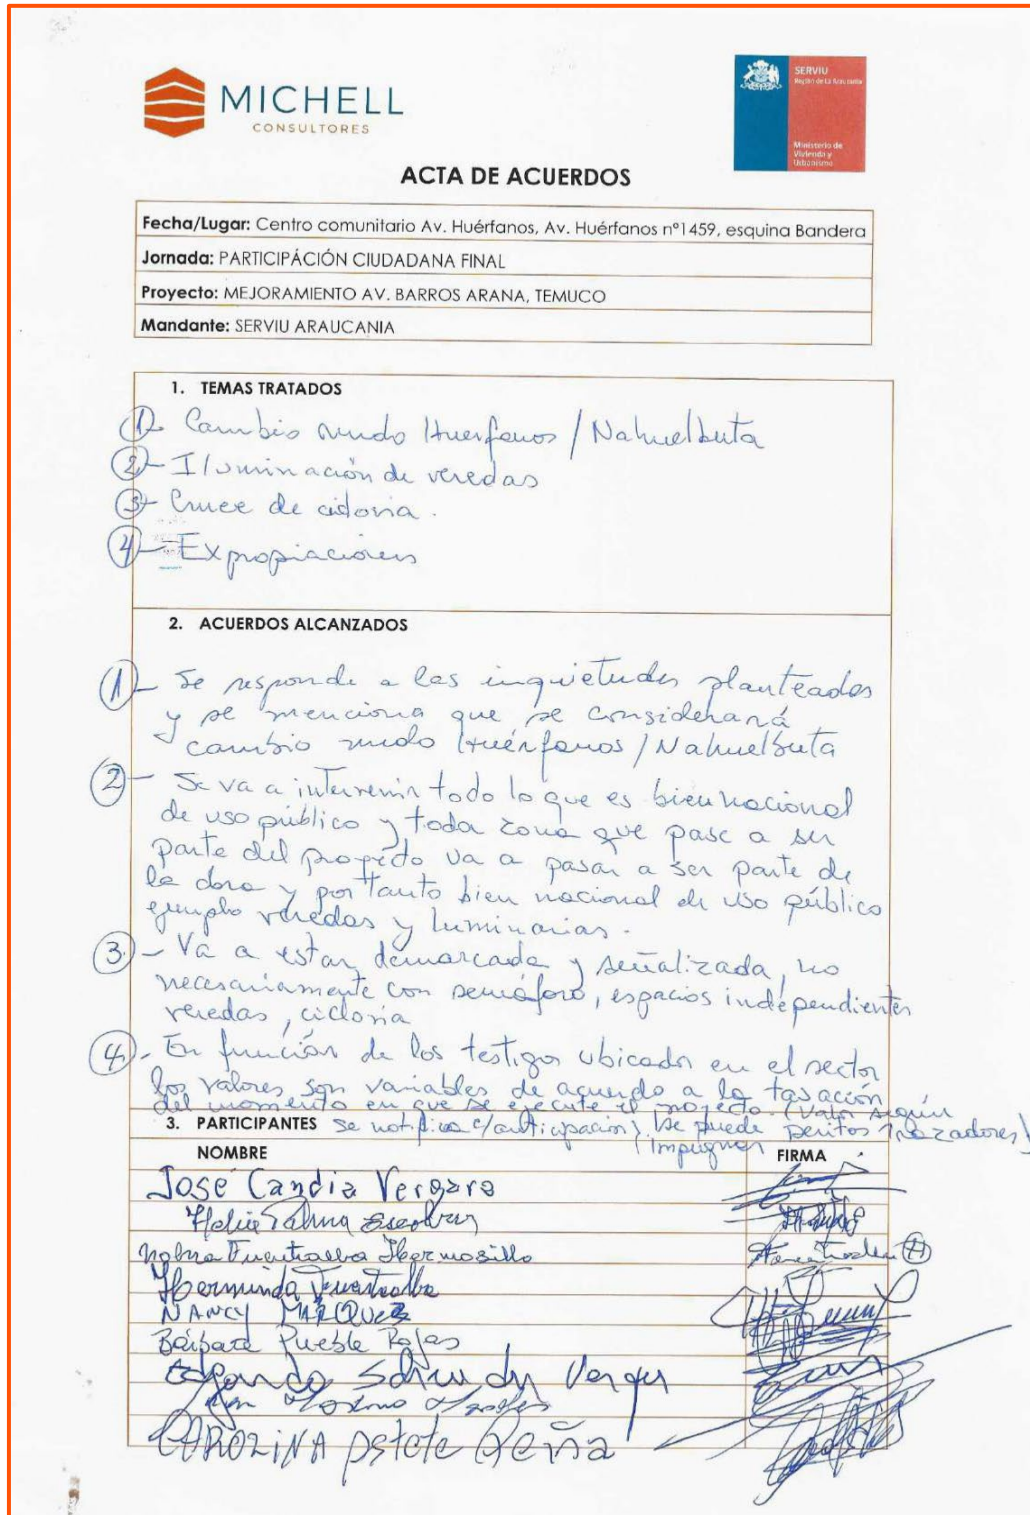 MICHELL
CONSULTORES
SERVIU
Región de La Araucanía
Ministerio de
Vivienda y
Urbanismo
ACTA DE ACUERDOS
Fecha/Lugar: Centro comunitario Av. Huérfanos, Av. Huérfanos nº1459, esquina Bandera
Jornada: PARTICIPÁCIÓN CIUDADANA FINAL
Proyecto: MEJORAMIENTO AV. BARROS ARANA, TEMUCO
Mandante: SERVIU ARAUCANIA
1. TEMAS TRATADOS
1- Cambio nudo Huerfanos / Nahuelbuta
2- Iluminación de veredas
3- Cruce de ciclovia.
4- Expropiaciones
2. ACUERDOS ALCANZADOS
1- Se responde a las inquietudes planteadas
y se menciona que se considerará
cambio nudo Huérfanos / Nahuelbuta
2- Se va a intervenir todo lo que es bien nacional
de uso público y toda zona que pase a ser
parte del proyecto va a pasar a ser parte de
la obra y por tanto bien nacional de uso público
ejemplo veredas y luminarias.
3- Va a estar demarcada y señalizada, no
necesariamente con semáforo, espacios independientes
veredas, ciclovia
4- En función de los testigos ubicados en el sector
los valores son variables de acuerdo a la tasación
del momento en que se ejecute el proyecto. (Valor según
peritos tasadores)
se notifica c/anticipación, se puede
impugnar
3. PARTICIPANTES
NOMBRE FIRMA
José Candia Vergara
Palma Escobar
Norma Fuentealba Hermosilla
Herminda Fuentealba
NANCY MARQUEZ
Bárbara Puebla Rojas
CAROLINA Astete Peña